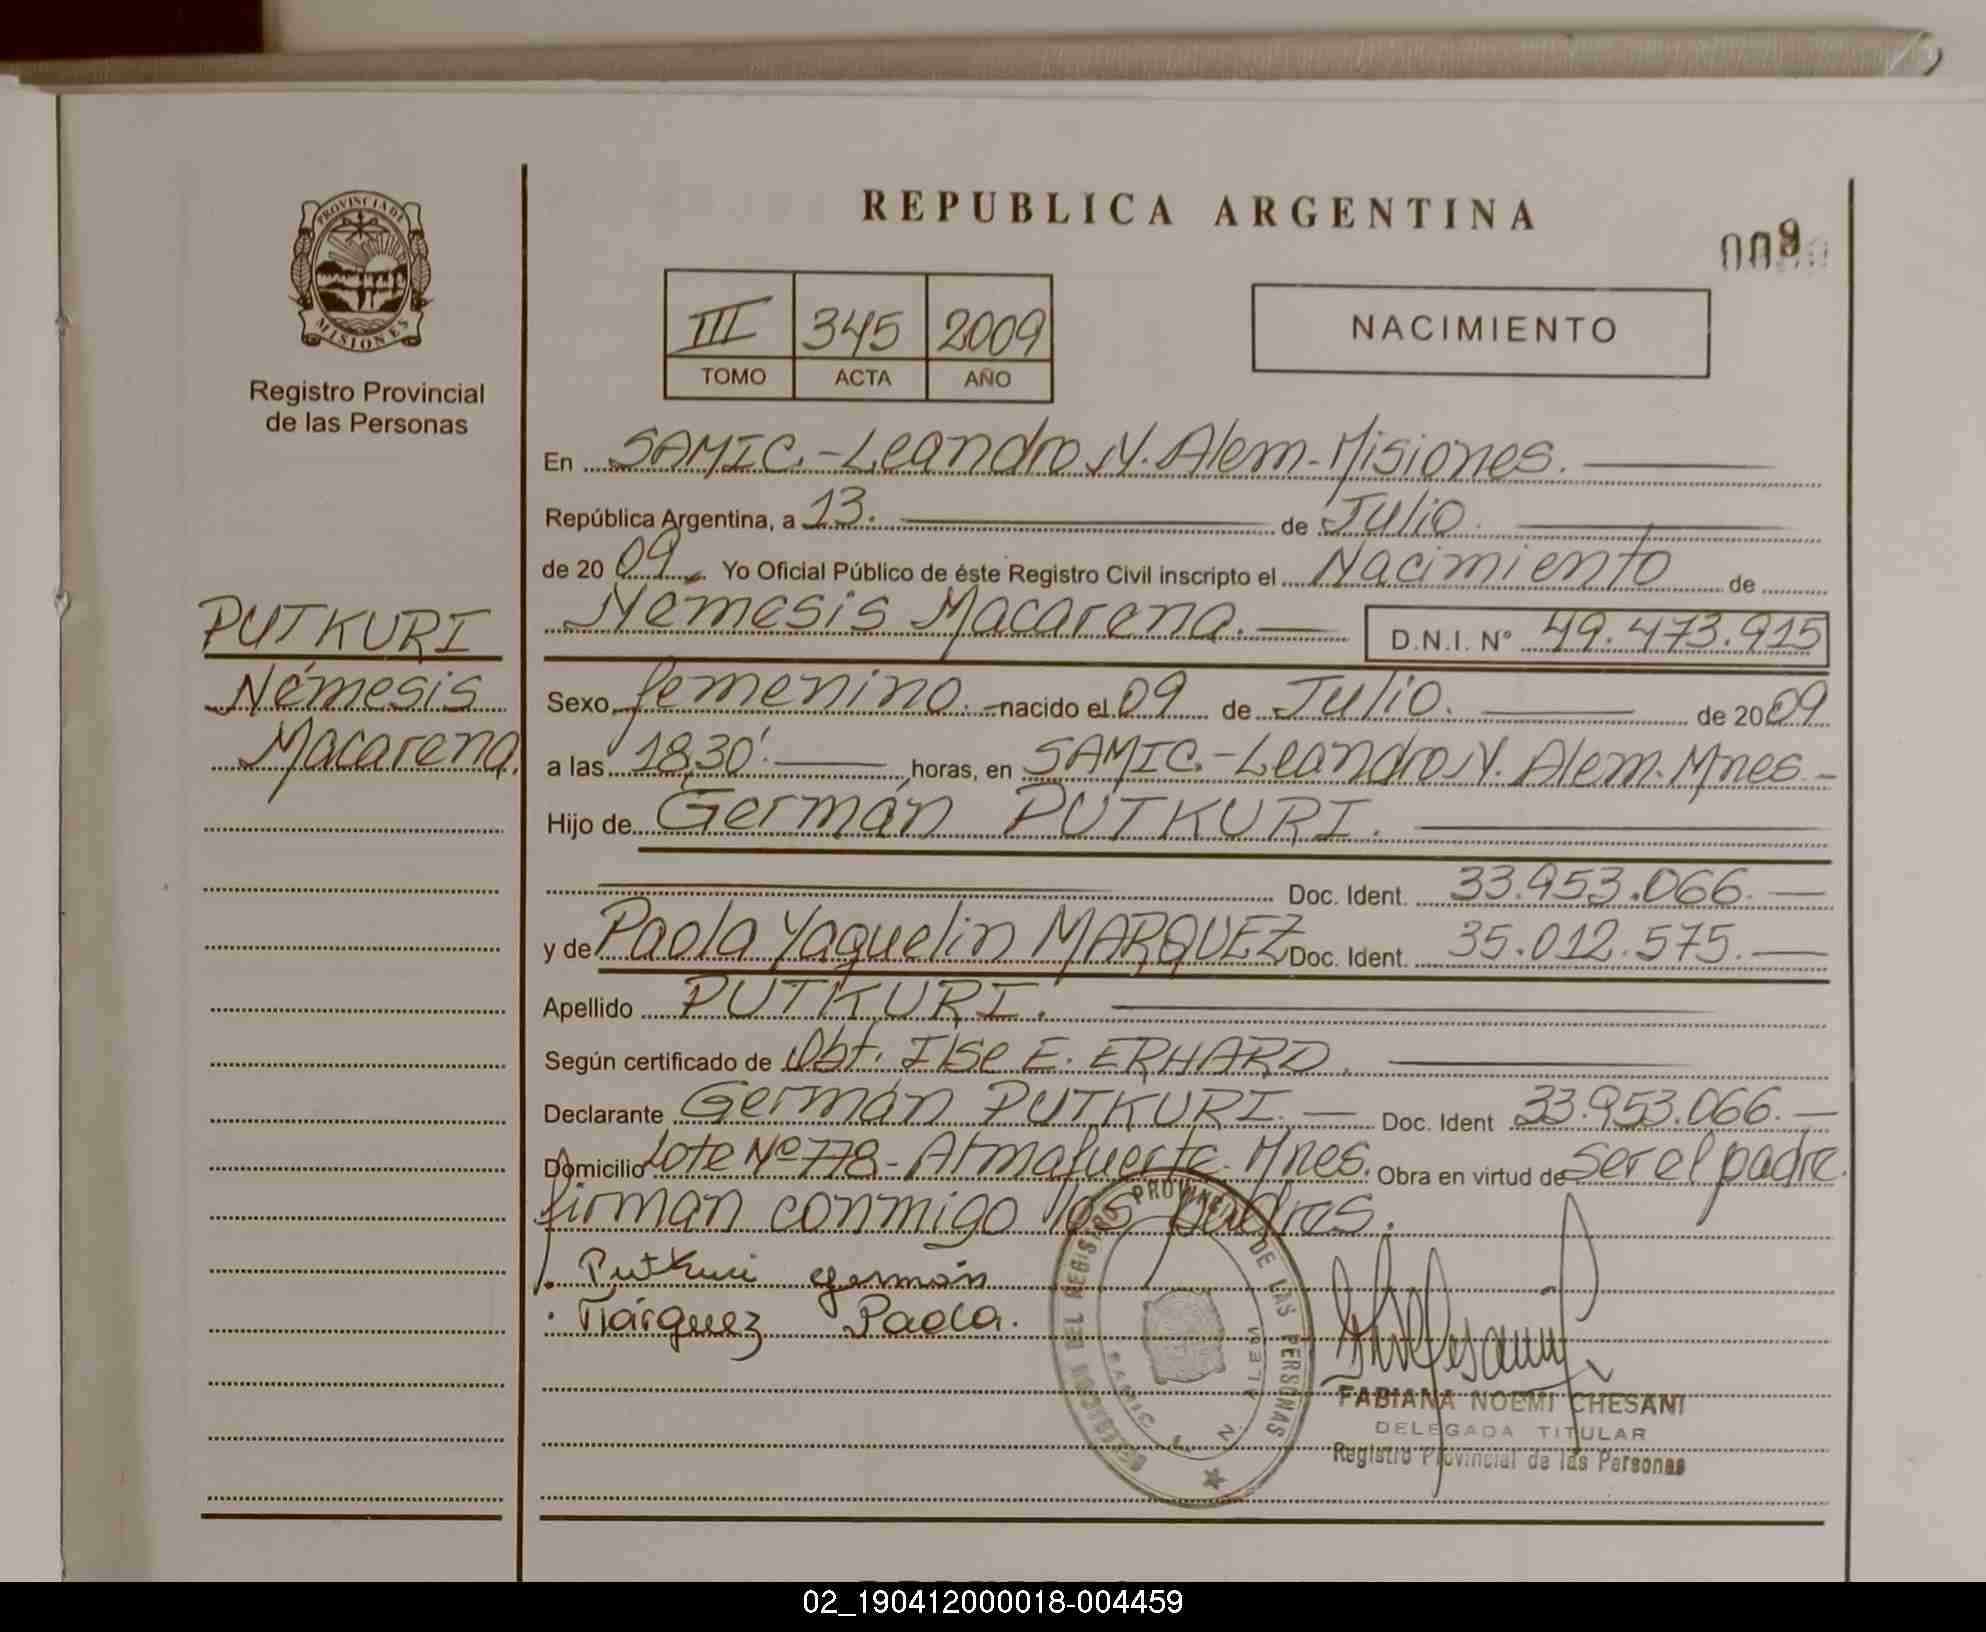 REPUBLICA ARGENTINA
009
PROVINCIA DE
MISIONES
Registro Provincial
de las Personas
III 345 2009
TOMO ACTA AÑO
NACIMIENTO
En SAMIC.-Leandro N. Alem-Misiones.
República Argentina, a 13. de Julio.
de 20 09. Yo Oficial Público de éste Registro Civil inscripto el Nacimiento de
Némesis Macarena. D.N.I. Nº 49.473.915
PUTKURI
Némesis
Macarena.
Sexo femenino. nacido el 09 de Julio. de 20 09
a las 18,30'. horas, en SAMIC.-Leandro N. Alem. Mnes.-
Hijo de Germán PUTKURI.
Doc. Ident. 33.953.066.
y de Paola Yaquelin MARQUEZ Doc. Ident. 35.012.575.
Apellido PUTKURI.
Según certificado de Obt. Ilse E. ERHARD.
Declarante Germán PUTKURI. Doc. Ident 33.953.066.
Domicilio Lote Nº 778-Almafuerte-Mnes. Obra en virtud de ser el padre.
firman conmigo los padres.
Putkuri germán
Márquez Paola.
REGISTRO PROVINCIAL DE LAS PERSONAS
N. ALEM
FABIANA NOEMI CHESANI
DELEGADA TITULAR
Registro Provincial de las Personas
02_190412000018-004459